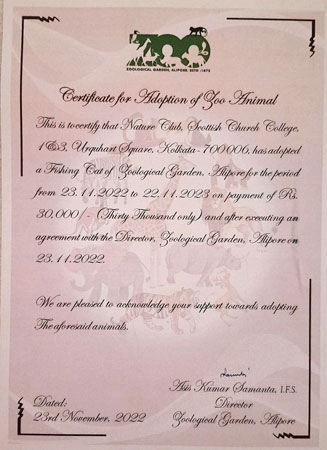 ZOOLOGICAL GARDEN, ALIPORE. ESTD :1875
Certificate for Adoption of Zoo Animal
This is to certify that Nature Club, Scottish Church College,
1&3, Urquhart Square, Kolkata-700006, has adopted
a Fishing Cat of Zoological Garden, Alipore for the period
from 23.11.2022 to 22.11.2023 on payment of Rs.
30,000/- (Thirty Thousand only) and after executing an
agreement with the Director, Zoological Garden, Alipore on
23.11.2022.
We are pleased to acknowledge your support towards adopting
The aforesaid animals.
Asis Kumar Samanta, I.F.S.
Dated:
Director
23rd November, 2022
Zoological Garden, Alipore